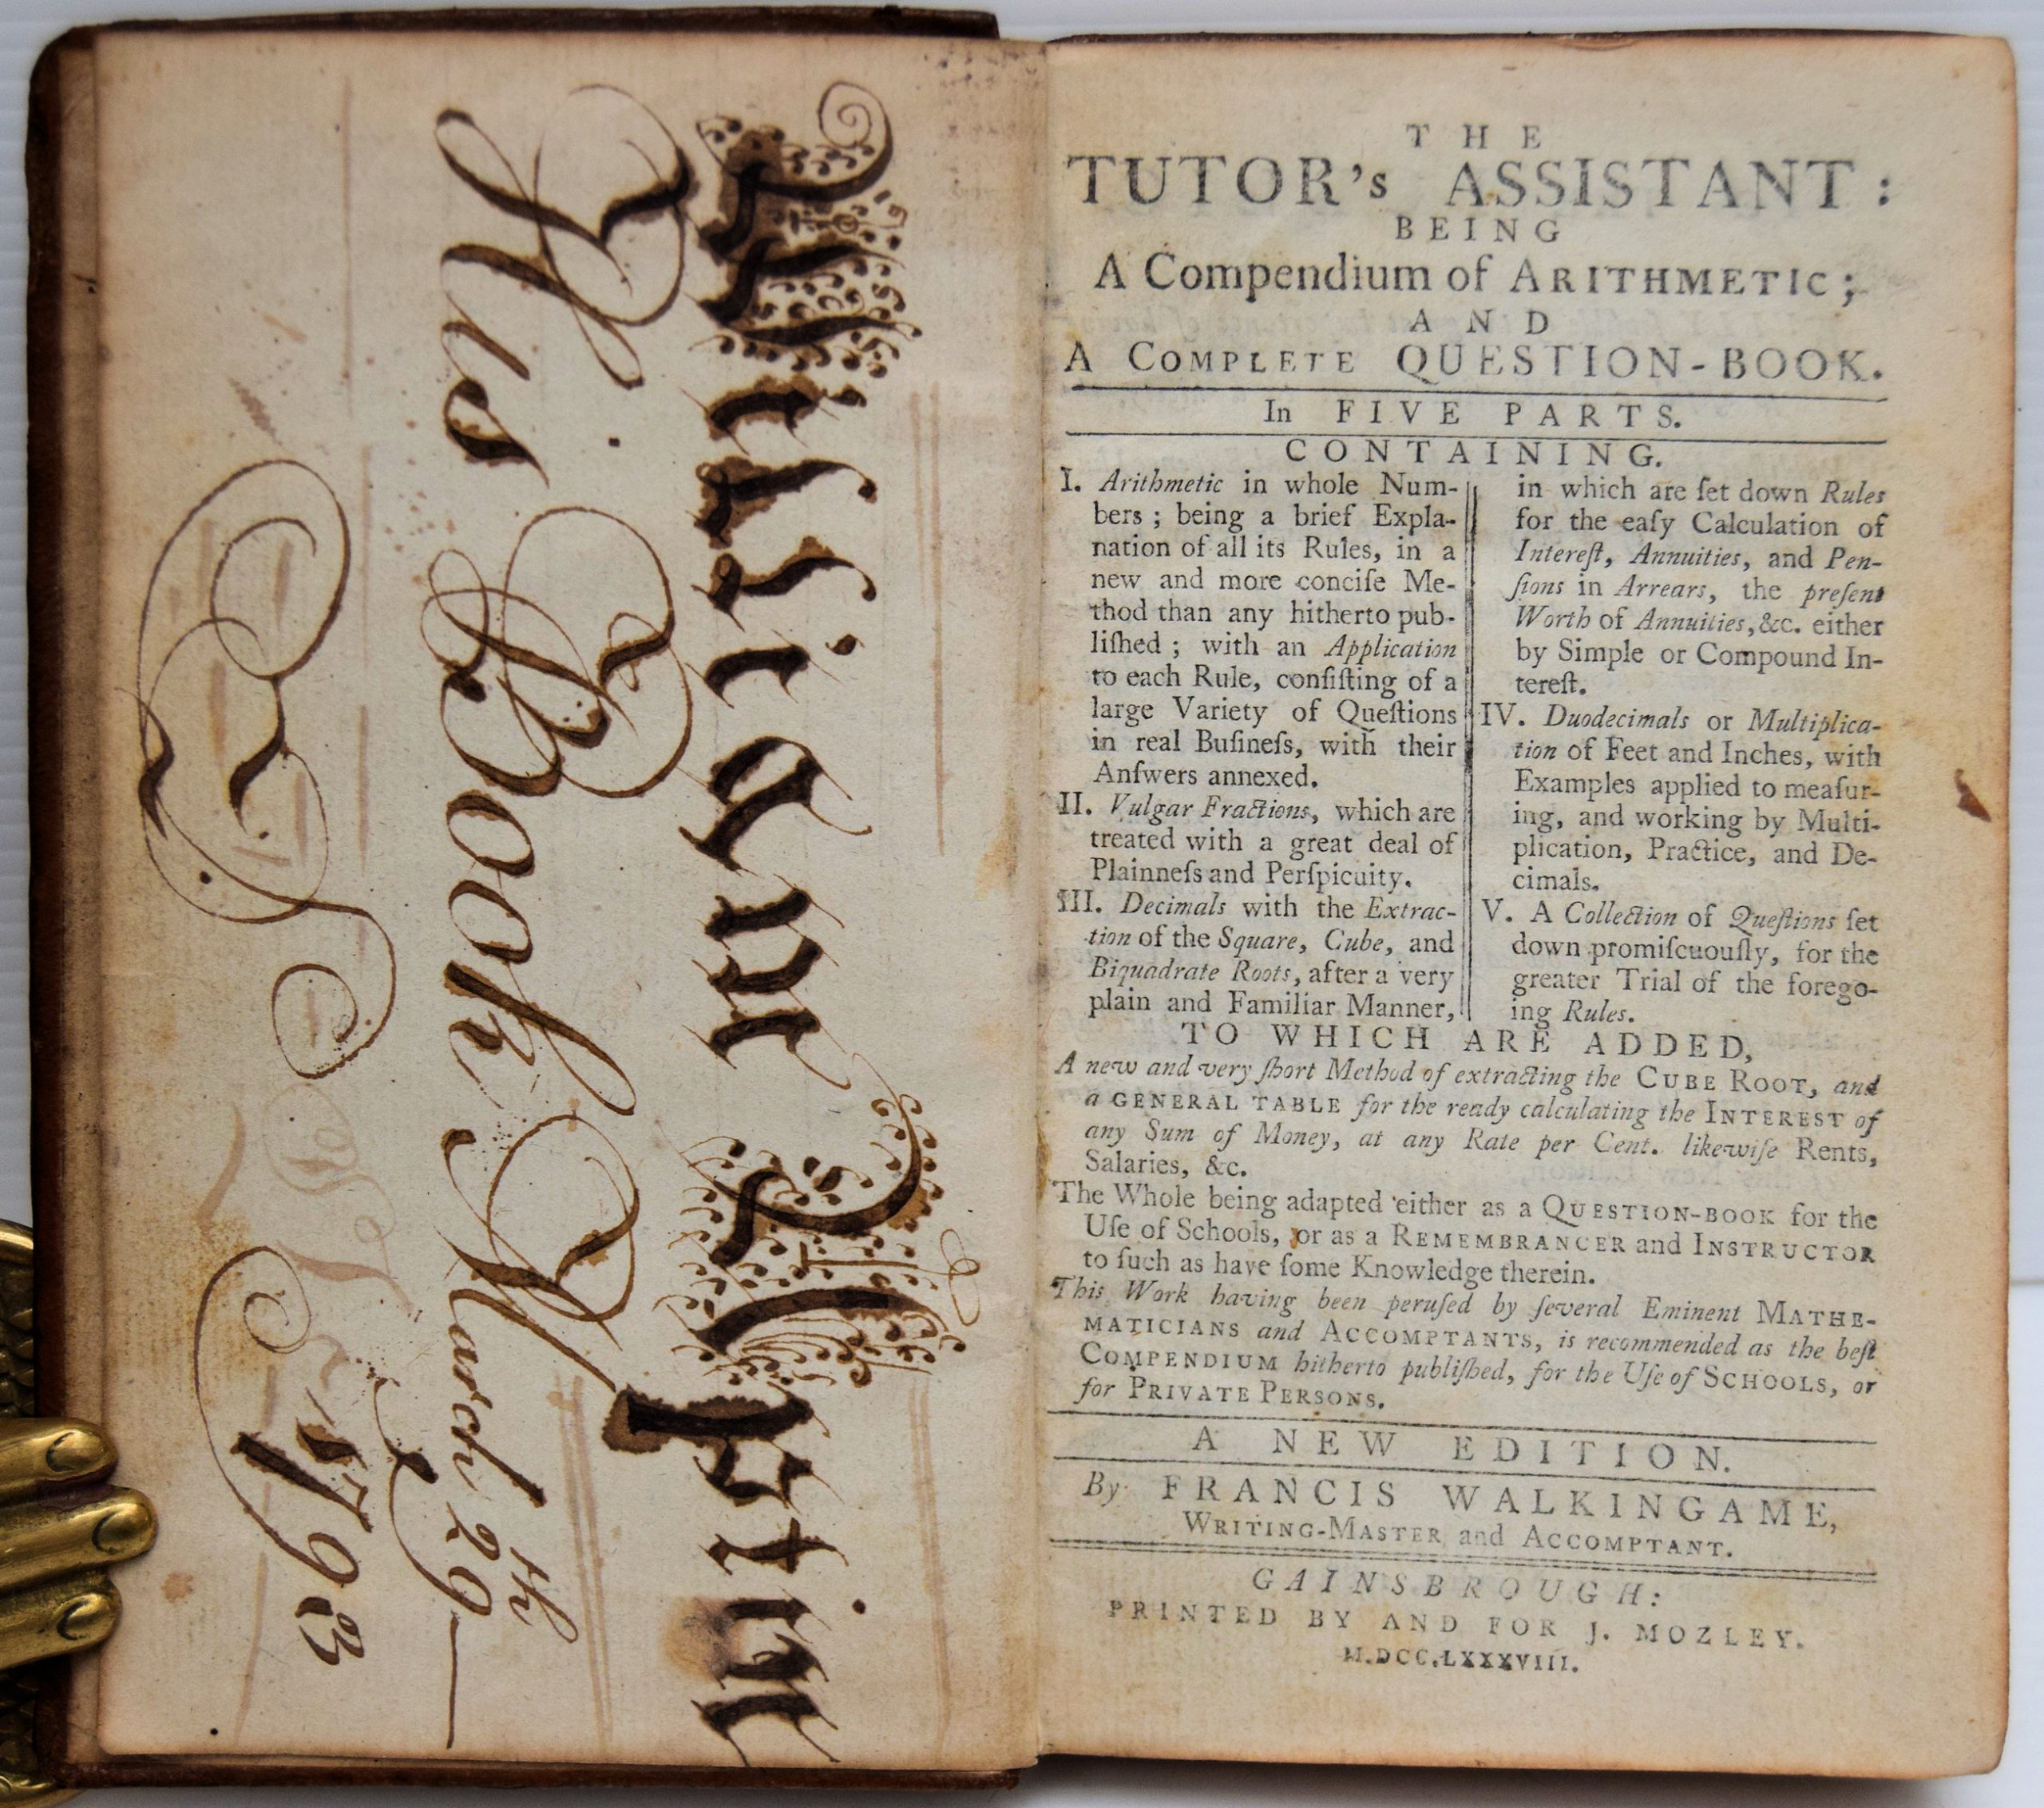 William
His Book March 29th
1793
THE
TUTOR's ASSISTANT:
BEING
A Compendium of ARITHMETIC;
AND
A COMPLETE QUESTION-BOOK.
In FIVE PARTS.
CONTAINING.
I. Arithmetic in whole Num-
bers; being a brief Expla-
nation of all its Rules, in a
new and more conciſe Me-
thod than any hitherto pub-
liſhed; with an Application
to each Rule, conſiſting of a
large Variety of Queſtions
in real Buſineſs, with their
Anſwers annexed.
II. Vulgar Fractions, which are
treated with a great deal of
Plainneſs and Perſpicuity.
III. Decimals with the Extrac-
tion of the Square, Cube, and
Biquadrate Roots, after a very
plain and Familiar Manner,
in which are ſet down Rules
for the eaſy Calculation of
Intereſt, Annuities, and Pen-
ſions in Arrears, the preſent
Worth of Annuities, &c. either
by Simple or Compound In-
tereſt.
IV. Duodecimals or Multiplica-
tion of Feet and Inches, with
Examples applied to meaſur-
ing, and working by Multi-
plication, Practice, and De-
cimals.
V. A Collection of Queſtions ſet
down promiſcuouſly, for the
greater Trial of the forego-
ing Rules.
TO WHICH ARE ADDED,
A new and very ſhort Method of extracting the CUBE ROOT, and
a GENERAL TABLE for the ready calculating the INTEREST of
any Sum of Money, at any Rate per Cent. likewiſe Rents,
Salaries, &c.
The Whole being adapted either as a QUESTION-BOOK for the
Uſe of Schools, or as a REMEMBRANCER and INSTRUCTOR
to ſuch as have ſome Knowledge therein.
This Work having been peruſed by ſeveral Eminent MATHE-
MATICIANS and ACCOMPTANTS, is recommended as the beſt
COMPENDIUM hitherto publiſhed, for the Uſe of SCHOOLS, or
for PRIVATE PERSONS.
A NEW EDITION.
By FRANCIS WALKINGAME,
WRITING-MASTER and ACCOMPTANT.
GAINSBROUGH:
PRINTED BY AND FOR J. MOZLEY.
M.DCC.LXXXVIII.